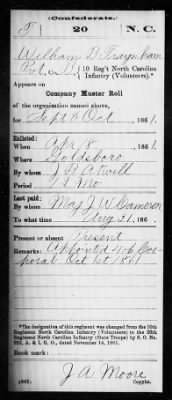 (Confederate.)
T 20 N. C.
William B Traynham
Pvt, Co. , 10 Reg't North Carolina
Infantry (Volunteers).*
Appears on
Company Muster Roll
of the organization named above,
for Sept & Oct , 1861.
Enlisted:
When Apr 18 , 1861.
Where Goldsboro
By whom J H Atwell
Period 12 Mo
Last paid:
By whom Maj J. W. Cameron
To what time Aug 31 , 186 .
Present or absent Present
Remarks: Appointed 4th Cor-
poral Oct 1st 1861
*The designation of this regiment was changed from the 10th
Regiment North Carolina Infantry (Volunteers) to the 20th
Regiment North Carolina Infantry (State Troops) by S. O. No.
222, A. & I. G. O., dated November 14, 1861.
Book mark:
J A Moore
(642) Copyist.